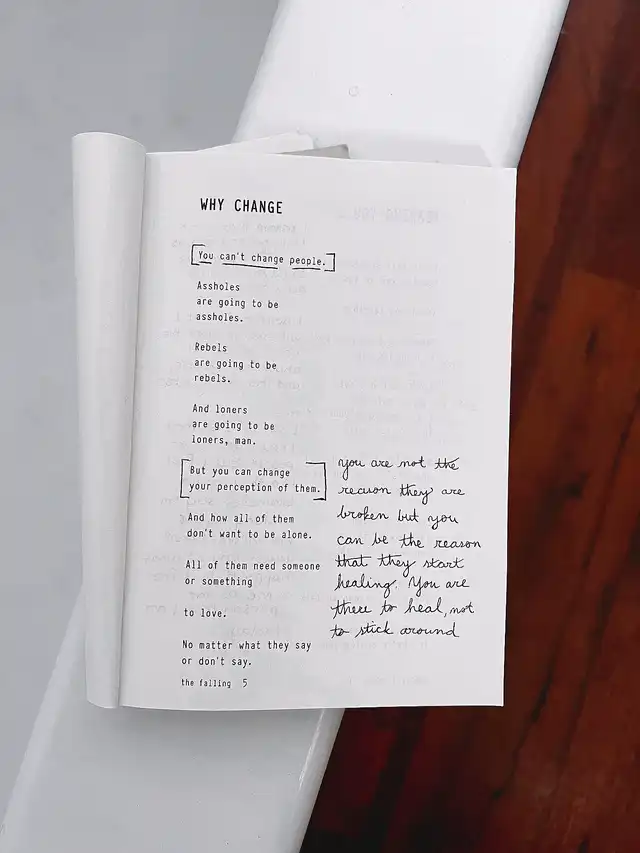 WHY CHANGE
You can't change people.
Assholes
are going to be
assholes.
Rebels
are going to be
rebels.
And loners
are going to be
loners, man.
But you can change
your perception of them.
And how all of them
don't want to be alone.
All of them need someone
or something
to love.
No matter what they say
or don't say.
the falling 5
you are not the
reason they are
broken but you
can be the reason
that they start
healing. You are
there to heal, not
to stick around